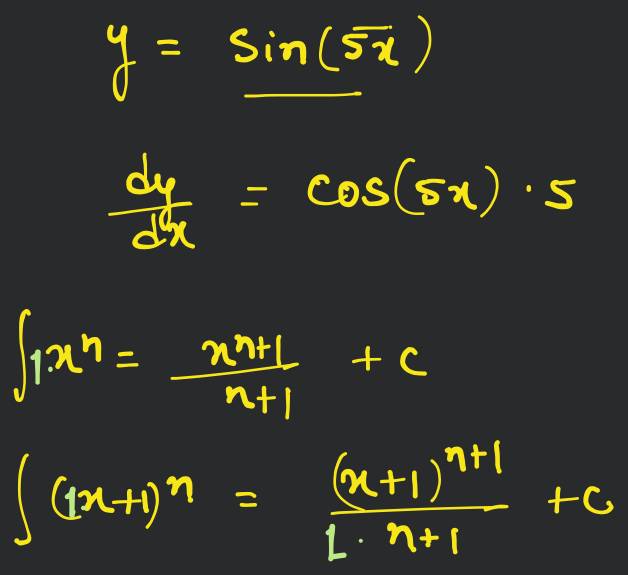 y = sin(5x)
dy/dx = cos(5x) · 5
∫1·xⁿ = xⁿ⁺¹/n+1 + c
∫(1x+1)ⁿ = (x+1)ⁿ⁺¹/1· n+1 + c